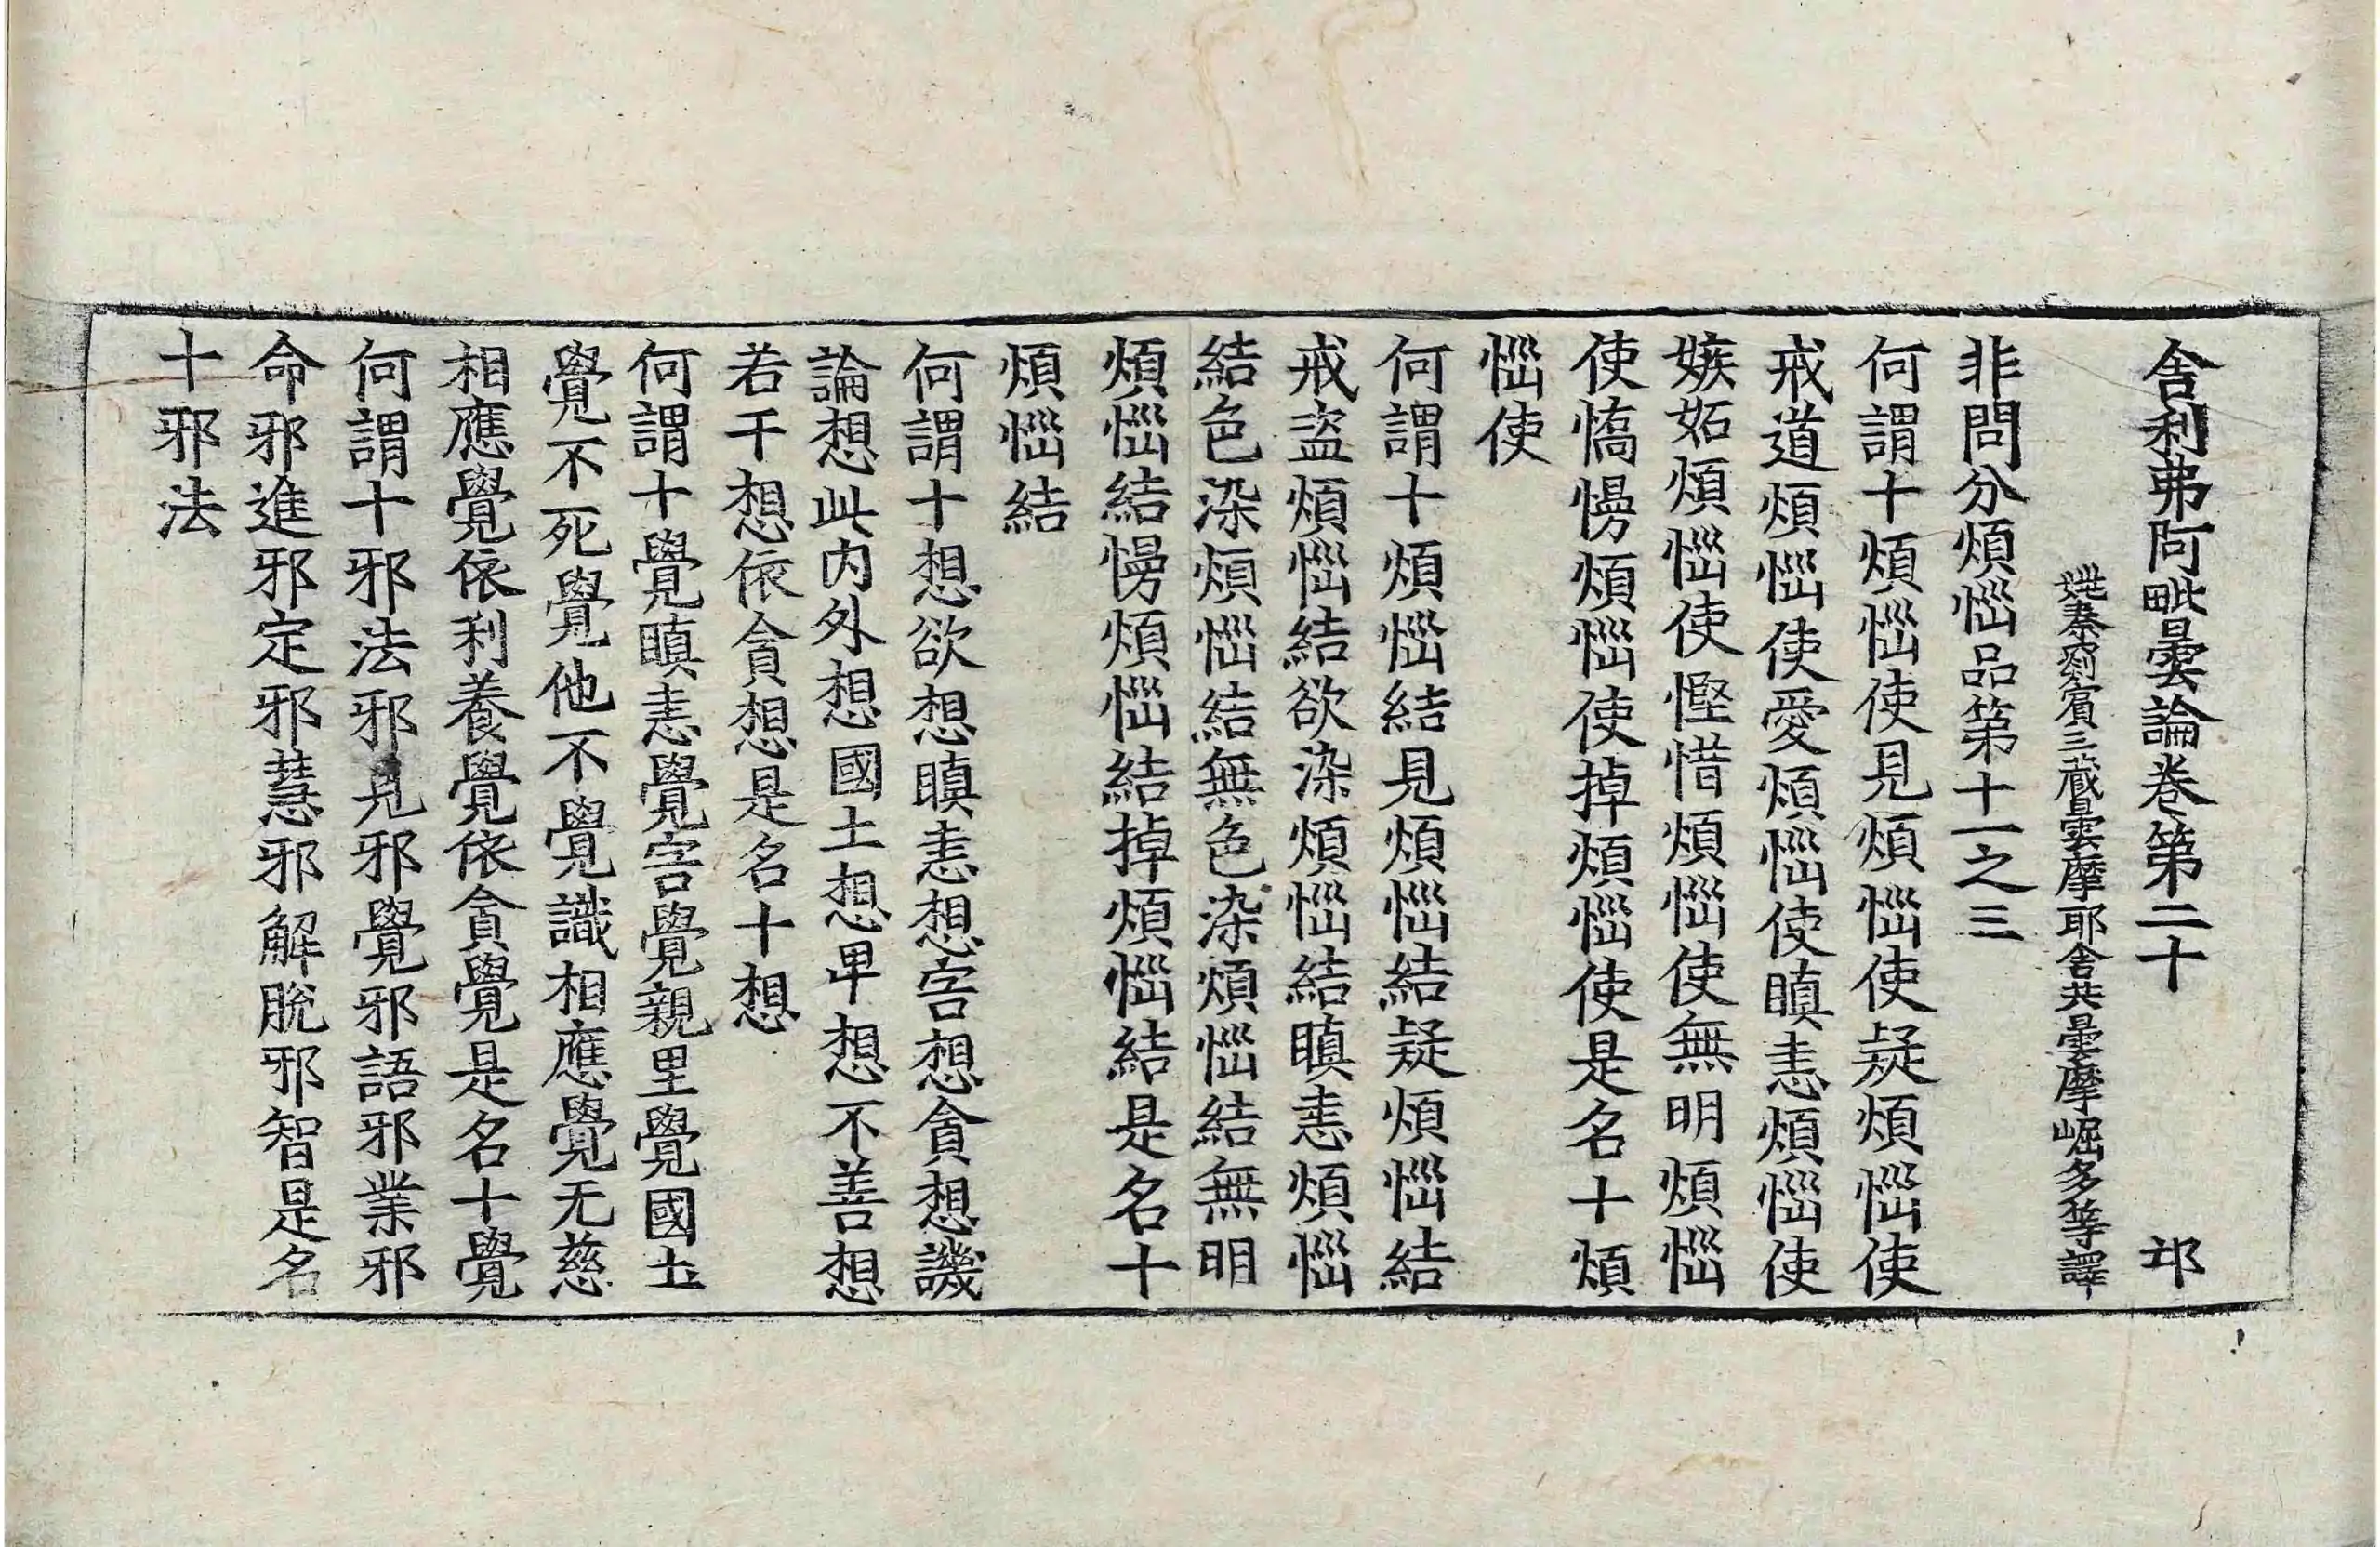 舎利弗阿毗曇論卷第二十　邙
姚秦罽賓三藏曇摩耶舍共曇摩崛多等譯
非問分煩惱品第十一之三
何謂十煩惱使見煩惱使疑煩惱使
戒道煩惱使愛煩惱使瞋恚煩惱使
嫉妬煩惱使慳惜煩惱使無明煩惱
使憍慢煩惱使掉煩惱使是名十煩
惱使
何謂十煩惱結見煩惱結疑煩惱結
戒盜煩惱結欲染煩惱結瞋恚煩惱
結色染煩惱結無色染煩惱結無明
煩惱結慢煩惱結掉煩惱結是名十
煩惱結
何謂十想欲想瞋恚想害想貪想譏
論想此内外想國土想卑想不善想
若干想依貪想是名十想
何謂十覺瞋恚覺害覺親里覺國土
覺不死覺他不覺識相應覺无慈
相應覺依利養覺依貪覺是名十覺
何謂十邪法邪見邪覺邪語邪業邪
命邪進邪定邪慧邪解脫邪智是名
十邪法